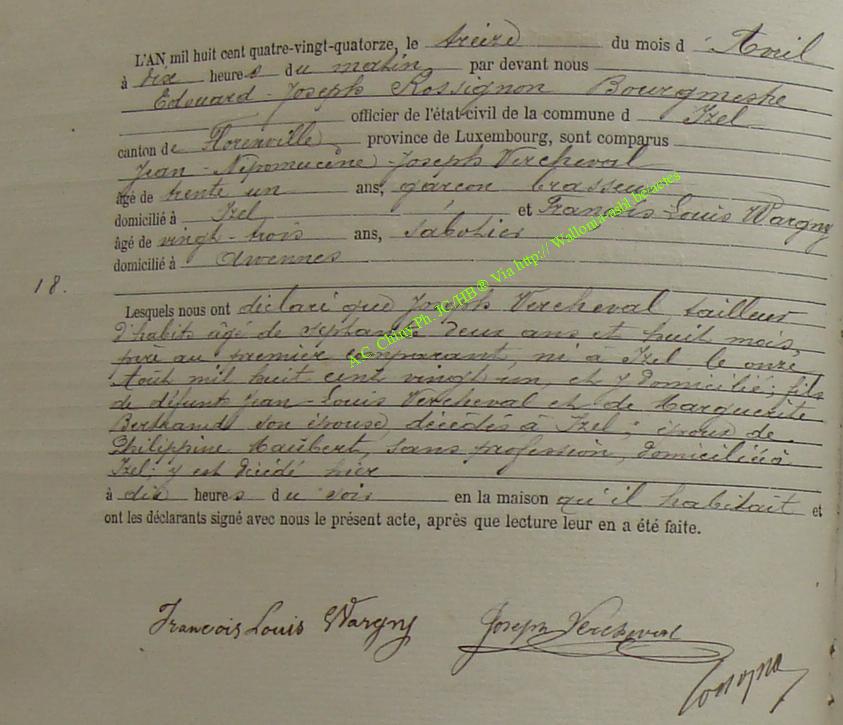 L'AN mil huit cent quatre-vingt-quatorze, le treize du mois d'Avril
à dix heures du matin, par devant nous
Edouard-Joseph Rossignon Bourgmestre
officier de l'état-civil de la commune d'Izel
canton de Florenville province de Luxembourg, sont comparus
Jean-Népomucène-Joseph Vercheval
âgé de trente un ans, garçon brasseur
domicilié à Izel et François-Louis Wargny
âgé de vingt-trois ans, sabotier
domicilié à
18.
Lesquels nous ont déclaré que Joseph Vercheval, tailleur
d'habits âgé de septante deux ans et huit mois,
père au premier comparant, né à Izel le onze
Août mil huit cent vingt-un, et y domicilié; fils
de défunt Jean-Louis Vercheval et de Marguerite
Bertrand son épouse, décédés à Izel; époux de
Philippine Maubert, sans profession, domiciliée à
Izel; y est décédé hier
à dix heures du soir en la maison qu'il habitait et
ont les déclarants signé avec nous le présent acte, après que lecture leur en a été faite.
François Louis Wargny Joseph Vercheval
A.C. Chiny Ph. JC/HB ® Via http:// Wallonia-asbl.be/actes